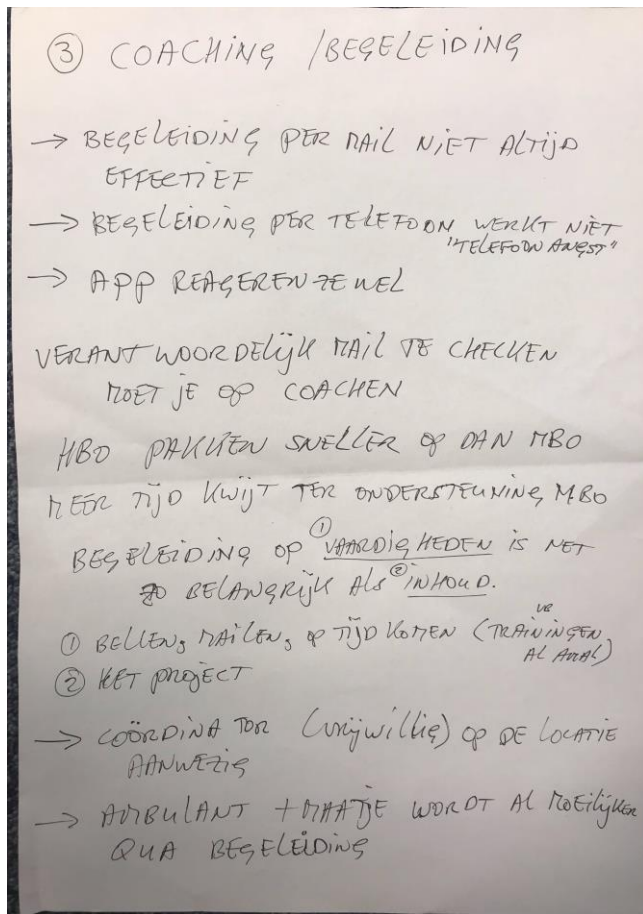 ③ COACHING / BEGELEIDING
→ BEGELEIDING PER MAIL NIET ALTIJD
EFFECTIEF
→ BEGELEIDING PER TELEFOON WERKT NIET
"TELEFOON ANGST"
→ APP REAGEREN ZE WEL
VERANTWOORDELIJK MAIL TE CHECKEN
MOET JE OP COACHEN
HBO PAKKEN SNELLER OP DAN MBO
MEER TIJD KWIJT TER ONDERSTEUNING MBO
BEGELEIDING OP ① VAARDIGHEDEN IS NET
ZO BELANGRIJK ALS ② INHOUD.
① BELLEN, MAILEN, OP TIJD KOMEN (TRAININGEN
VB
AL AVAL)
② HET PROJECT
→ COÖRDINATOR (VRIJWILLIG) OP DE LOCATIE
AANWEZIG
→ AMBULANT + MAATJE WORDT AL MOEILIJKER
QUA BEGELEIDING